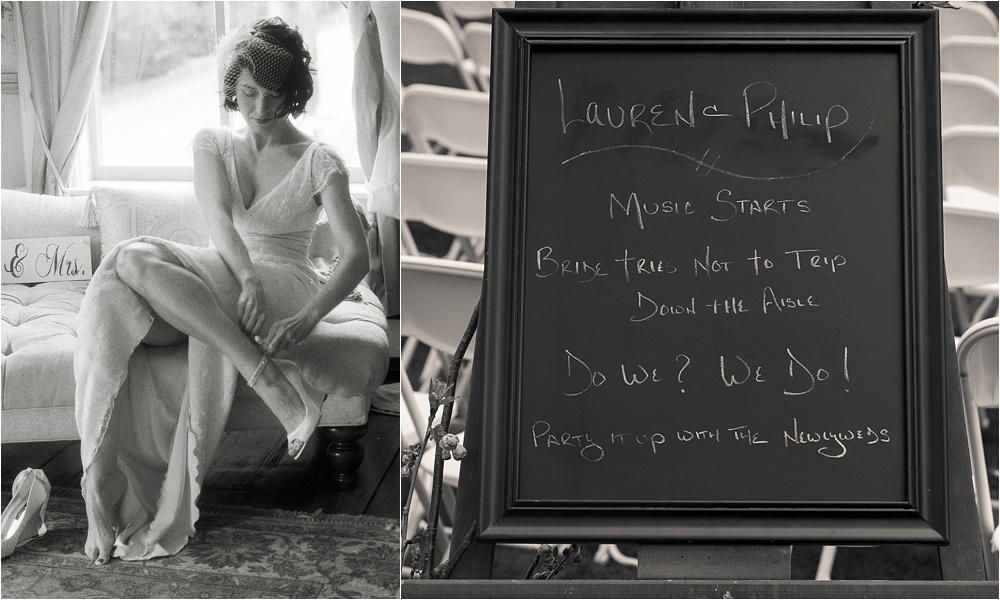 & Mrs.
Lauren & Philip
Music Starts
Bride tries Not to Trip
Down the Aisle
Do we? We Do!
Party it up with the Newlyweds